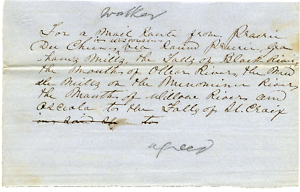 Walker
For a Mail Route from Prairie
in Wisconsin
Du Chien, via Round Prairie,
Mills, the Falls of Black River
the Mouths of Otter River, the
the Mills on the Menominie River
the Mouths of Willow River and
Osceola to the Falls of St. Croix
to
agreed